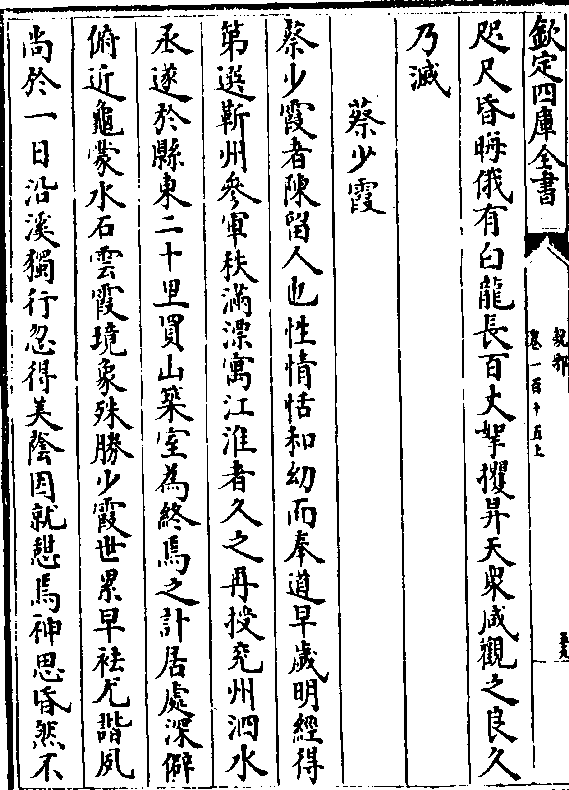 欽定四庫全書
說郛
卷一百十五上
咫尺昏晦俄有白龍長百丈拏攫昇天眾咸觀之良久
乃滅
蔡少霞
蔡少霞者陳留人也性情恬和幼而奉道早歲明經得
第選蘄州參軍秩滿漂寓江淮者久之再授兗州泗水
丞遂於縣東二十里買山築室為終焉之計居處深僻
俯近龜蒙水石雲霞境象殊勝少霞世累早祛尤諧夙
尚於一日沿溪獨行忽得美蔭因就憩焉神思昏然不